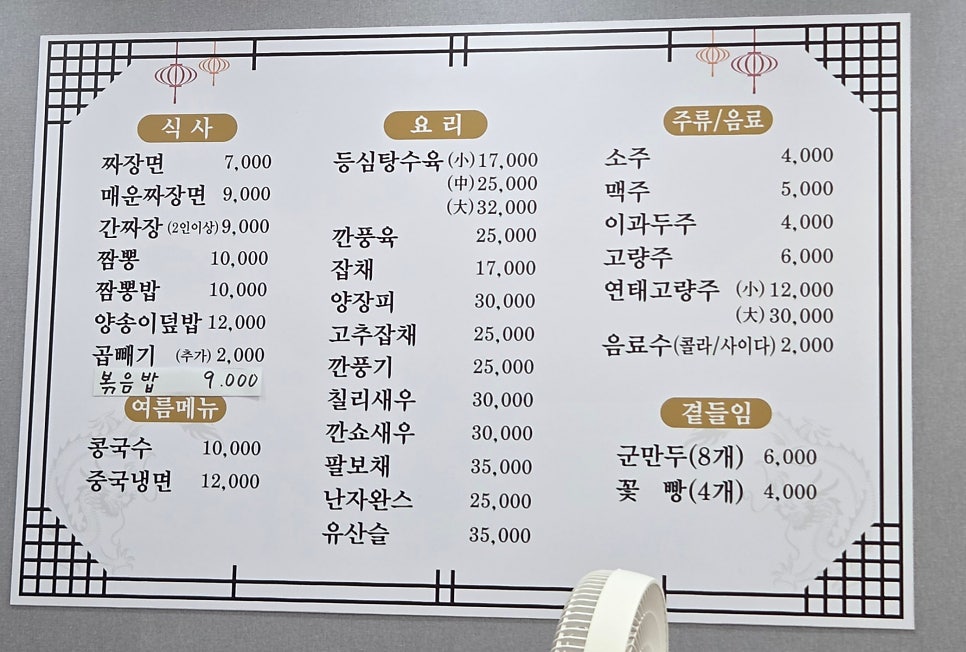 식 사
짜장면 7,000
매운짜장면 9,000
간짜장 (2인이상) 9,000
짬뽕 10,000
짬뽕밥 10,000
양송이덮밥 12,000
곱빼기 (추가) 2,000
볶음밥 9.000
여름메뉴
콩국수 10,000
중국냉면 12,000
요 리
등심탕수육 (小) 17,000
(中) 25,000
(大) 32,000
깐풍육 25,000
잡채 17,000
양장피 30,000
고추잡채 25,000
깐풍기 25,000
칠리새우 30,000
깐쇼새우 30,000
팔보채 35,000
난자완스 25,000
유산슬 35,000
주류/음료
소주 4,000
맥주 5,000
이과두주 4,000
고량주 6,000
연태고량주 (小) 12,000
(大) 30,000
음료수(콜라/사이다) 2,000
곁들임
군만두(8개) 6,000
꽃 빵(4개) 4,000